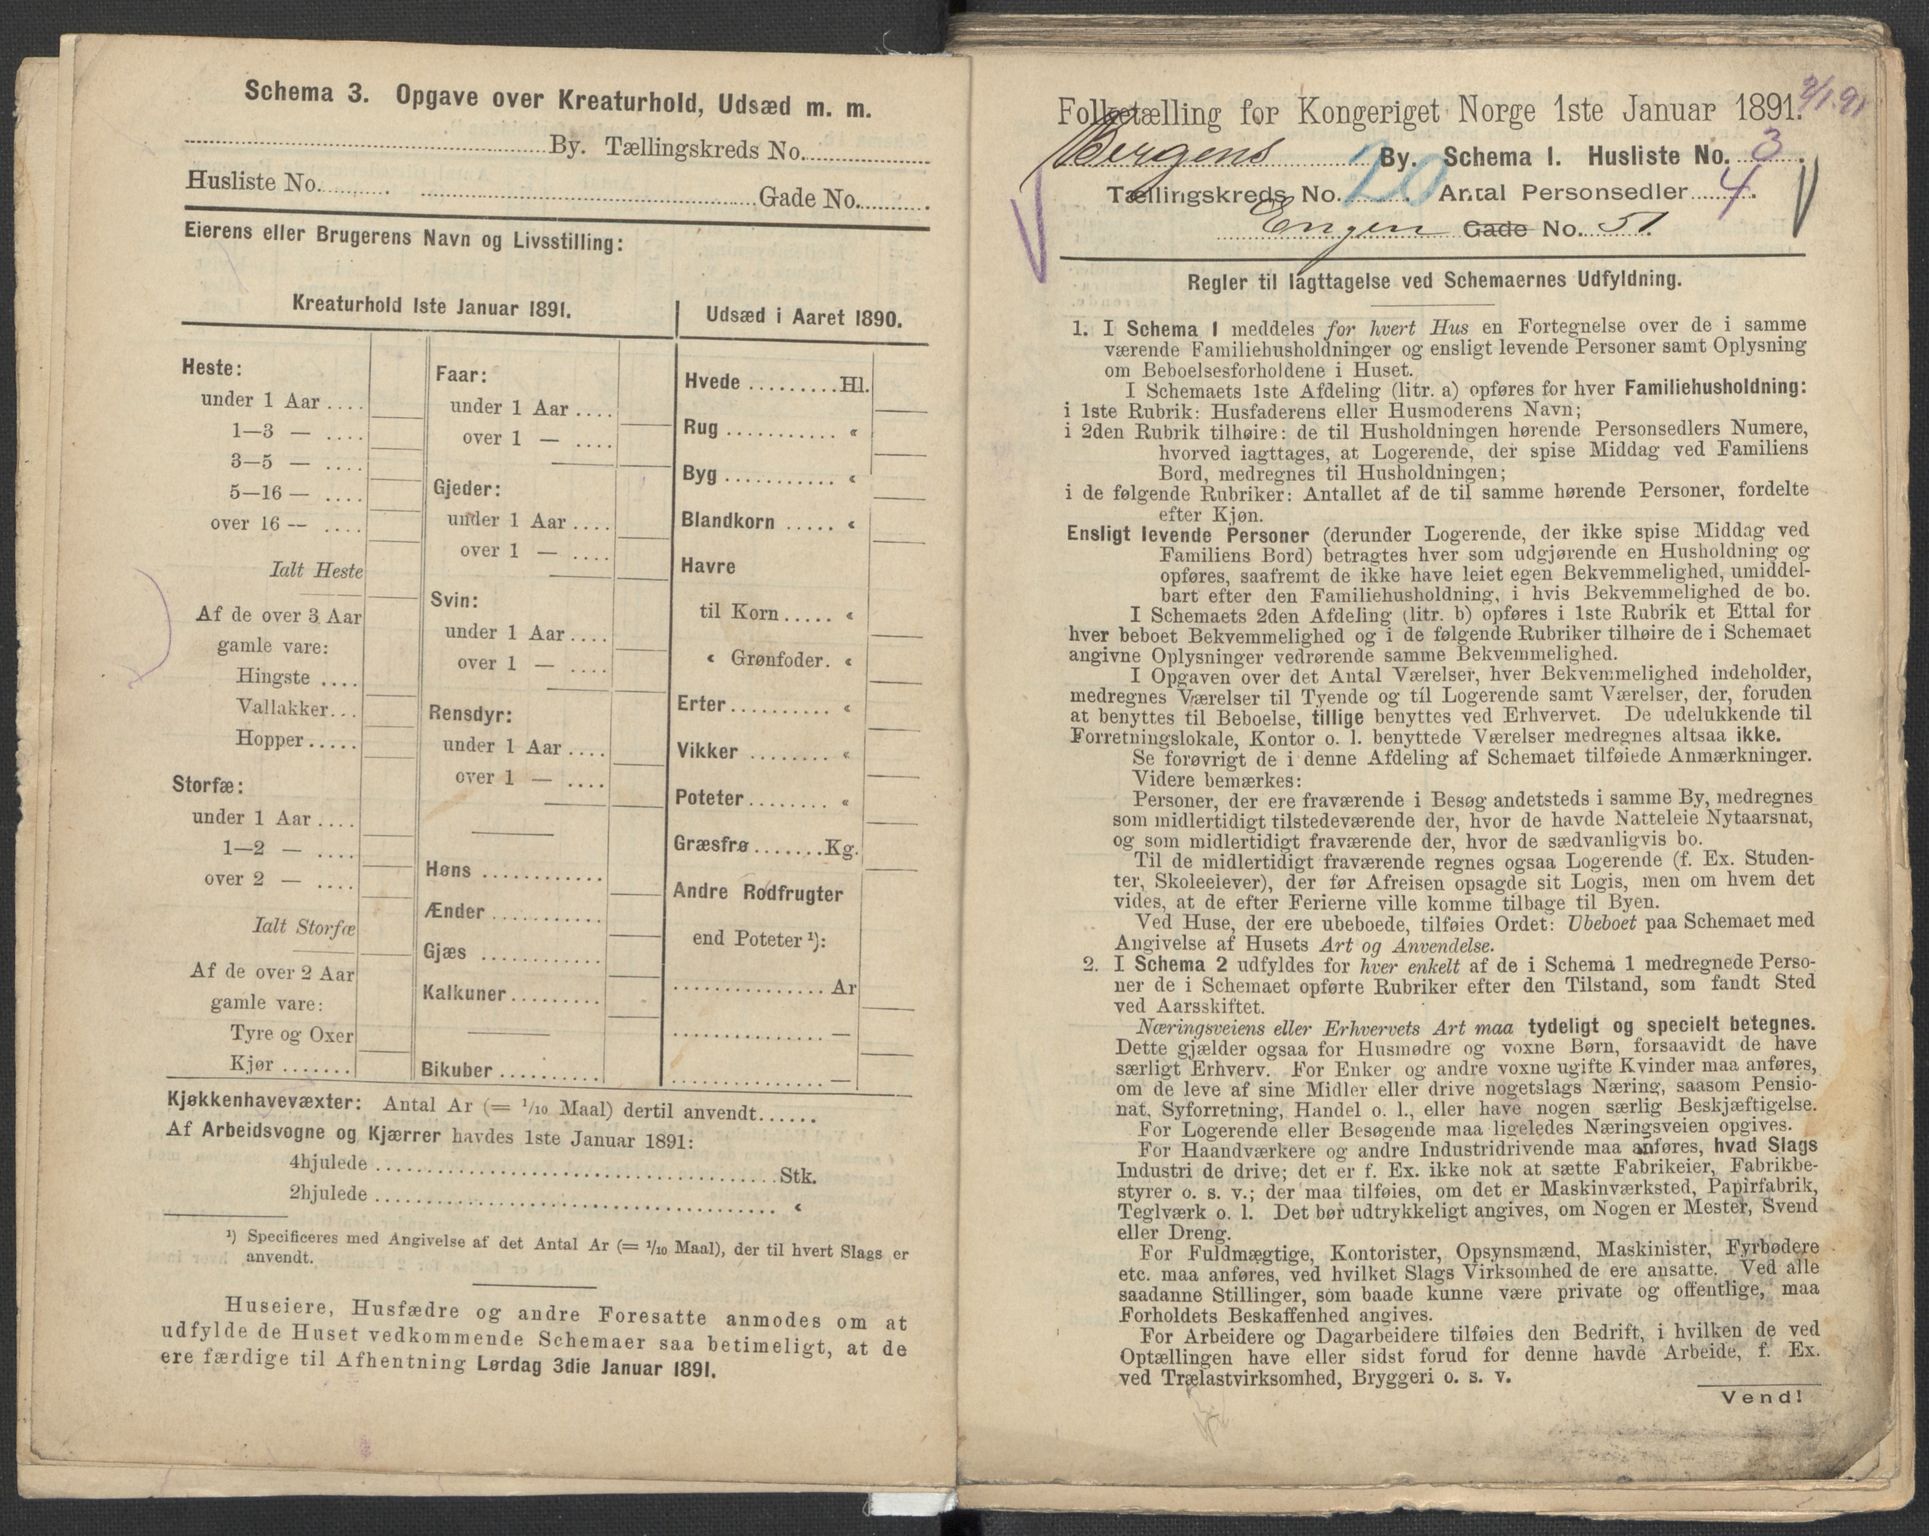 Schema 3. Opgave over Kreaturhold, Udsæd m. m.
By. Tællingskreds No.
Husliste No. Gade No.
Eierens eller Brugerens Navn og Livsstilling:
Kreaturhold 1ste Januar 1891.
Heste:
under 1 Aar ....
1—3 — ....
3—5 — ....
5—16 — ....
over 16 — ....
Ialt Heste
Af de over 3 Aar
gamle vare:
Hingste ....
Vallakker...
Hopper.....
Storfæ:
under 1 Aar ....
1—2 — ....
over 2 — ....
Ialt Storfæ
Af de over 2 Aar
gamle vare:
Tyre og Oxer
Kjør .......
Faar:
under 1 Aar ....
over 1 — ....
Gjeder:
under 1 Aar ....
over 1 — ....
Svin:
under 1 Aar ....
over 1 — ....
Rensdyr:
under 1 Aar ....
over 1 — ....
Høns ............
Ænder ...........
Gjæs ............
Kalkuner.........
Bikuber ..........
Udsæd i Aaret 1890.
Hvede .........Hl.
Rug ........... «
Byg ........... «
Blandkorn ..... «
Havre
til Korn ..... «
« Grønfoder. «
Erter.......... «
Vikker ........ «
Poteter ........ «
Græsfrø .......Kg.
Andre Rodfrugter
end Poteter ¹):
............... Ar
............... —
............... —
Kjøkkenhavevæxter: Antal Ar (= 1/10 Maal) dertil anvendt......
Af Arbeidsvogne og Kjærrer havdes 1ste Januar 1891:
4hjulede ........................................ Stk.
2hjulede ........................................ «
¹) Specificeres med Angivelse af det Antal Ar (= 1/10 Maal), der til hvert Slags er
anvendt.
Huseiere, Husfædre og andre Foresatte anmodes om at
udfylde de Huset vedkommende Schemaer saa betimeligt, at de
ere færdige til Afhentning Lørdag 3die Januar 1891.
2/1 91
Folketælling for Kongeriget Norge 1ste Januar 1891.
Bergens By. Schema I. Husliste No. 3.
Tællingskreds No. 20. Antal Personsedler 4.
Engen Gade No. 51.
Regler til Iagttagelse ved Schemaernes Udfyldning.
1. I Schema I meddeles for hvert Hus en Fortegnelse over de i samme
værende Familiehusholdninger og ensligt levende Personer samt Oplysning
om Beboelsesforholdene i Huset.
I Schemaets 1ste Afdeling (litr. a) opføres for hver Familiehusholdning:
i 1ste Rubrik: Husfaderens eller Husmoderens Navn;
i 2den Rubrik tilhøire: de til Husholdningen hørende Personsedlers Numere,
hvorved iagttages, at Logerende, der spise Middag ved Familiens
Bord, medregnes til Husholdningen;
i de følgende Rubriker: Antallet af de til samme hørende Personer, fordelte
efter Kjøn.
Ensligt levende Personer (derunder Logerende, der ikke spise Middag ved
Familiens Bord) betragtes hver som udgjørende en Husholdning og
opføres, saafremt de ikke have leiet egen Bekvemmelighed, umiddel-
bart efter den Familiehusholdning, i hvis Bekvemmelighed de bo.
I Schemaets 2den Afdeling (litr. b) opføres i 1ste Rubrik et Ettal for
hver beboet Bekvemmelighed og i de følgende Rubriker tilhøire de i Schemaet
angivne Oplysninger vedrørende samme Bekvemmelighed.
I Opgaven over det Antal Værelser, hver Bekvemmelighed indeholder,
medregnes Værelser til Tyende og til Logerende samt Værelser, der, foruden
at benyttes til Beboelse, tillige benyttes ved Erhvervet. De udelukkende til
Forretningslokale, Kontor o. l. benyttede Værelser medregnes altsaa ikke.
Se forøvrigt de i denne Afdeling af Schemaet tilføiede Anmærkninger.
Videre bemærkes:
Personer, der ere fraværende i Besøg andetsteds i samme By, medregnes
som midlertidigt tilstedeværende der, hvor de havde Natteleie Nytaarsnat,
og som midlertidigt fraværende der, hvor de sædvanligvis bo.
Til de midlertidigt fraværende regnes ogsaa Logerende (f. Ex. Studen-
ter, Skoleelever), der før Afreisen opsagde sit Logis, men om hvem det
vides, at de efter Ferierne ville komme tilbage til Byen.
Ved Huse, der ere ubeboede, tilføies Ordet: Ubeboet paa Schemaet med
Angivelse af Husets Art og Anvendelse.
2. I Schema 2 udfyldes for hver enkelt af de i Schema 1 medregnede Perso-
ner de i Schemaet opførte Rubriker efter den Tilstand, som fandt Sted
ved Aarsskiftet.
Næringsveiens eller Erhvervets Art maa tydeligt og specielt betegnes.
Dette gjælder ogsaa for Husmødre og voxne Børn, forsaavidt de have
særligt Erhverv. For Enker og andre voxne ugifte Kvinder maa anføres,
om de leve af sine Midler eller drive nogetslags Næring, saasom Pensio-
nat, Syforretning, Handel o. l., eller have nogen særlig Beskjæftigelse.
For Logerende eller Besøgende maa ligeledes Næringsveien opgives.
For Haandværkere og andre Industridrivende maa anføres, hvad Slags
Industri de drive; det er f. Ex. ikke nok at sætte Fabrikeier, Fabrikbe-
styrer o. s. v.; der maa tilføies, om det er Maskinværksted, Papirfabrik,
Teglværk o. l. Det bør udtrykkeligt angives, om Nogen er Mester, Svend
eller Dreng.
For Fuldmægtige, Kontorister, Opsynsmænd, Maskinister, Fyrbødere
etc. maa anføres, ved hvilket Slags Virksomhed de ere ansatte. Ved alle
saadanne Stillinger, som baade kunne være private og offentlige, maa
Forholdets Beskaffenhed angives.
For Arbeidere og Dagarbeidere tilføies den Bedrift, i hvilken de ved
Optællingen have eller sidst forud for denne havde Arbeide, f. Ex.
ved Trælastvirksomhed, Bryggeri o. s. v.
Vend!